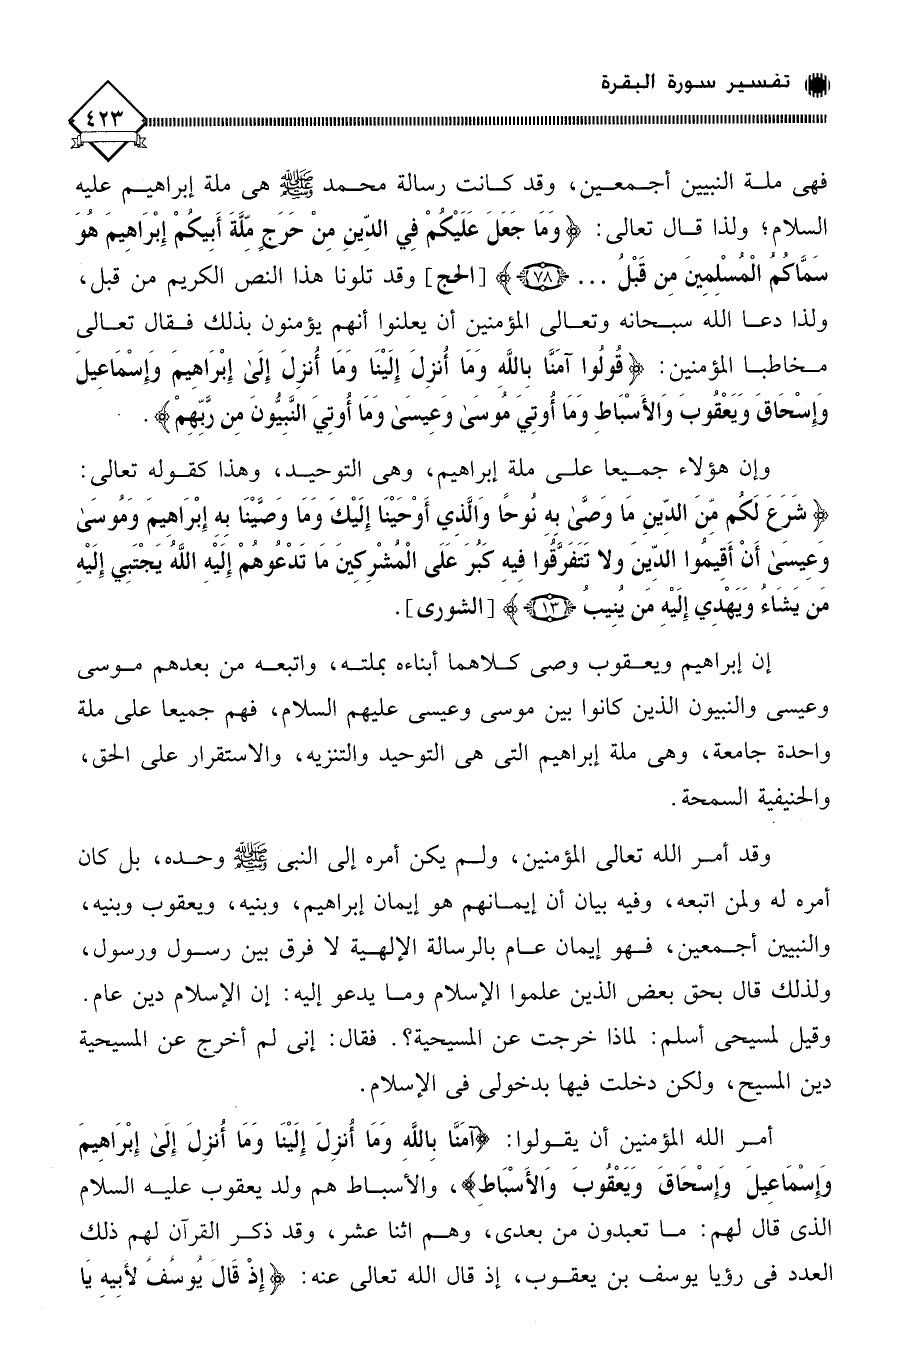 تفسير سورة البقرة
٤٢٣
فهى ملة النبيين أجمعين، وقد كانت رسالة محمد ﷺ هى ملة إبراهيم عليه
السلام؛ ولذا قال تعالى: ﴿وَمَا جَعَلَ عَلَيْكُمْ فِي الدِّينِ مِنْ حَرَجٍ مِّلَّةَ أَبِيكُمْ إِبْرَاهِيمَ هُوَ
سَمَّاكُمُ الْمُسْلِمِينَ مِن قَبْلُ ... ﴿٧٨﴾﴾ [الحج] وقد تلونا هذا النص الكريم من قبل،
ولذا دعا الله سبحانه وتعالى المؤمنين أن يعلنوا أنهم يؤمنون بذلك فقال تعالى
مخاطبا المؤمنين: ﴿قُولُوا آمَنَّا بِاللَّهِ وَمَا أُنزِلَ إِلَيْنَا وَمَا أُنزِلَ إِلَىٰ إِبْرَاهِيمَ وَإِسْمَاعِيلَ
وَإِسْحَاقَ وَيَعْقُوبَ وَالأَسْبَاطِ وَمَا أُوتِيَ مُوسَىٰ وَعِيسَىٰ وَمَا أُوتِيَ النَّبِيُّونَ مِن رَّبِّهِمْ﴾.
وإن هؤلاء جميعا على ملة إبراهيم، وهى التوحيد، وهذا كقوله تعالى:
﴿شَرَعَ لَكُم مِّنَ الدِّينِ مَا وَصَّىٰ بِهِ نُوحًا وَالَّذِي أَوْحَيْنَا إِلَيْكَ وَمَا وَصَّيْنَا بِهِ إِبْرَاهِيمَ وَمُوسَىٰ
وَعِيسَىٰ أَنْ أَقِيمُوا الدِّينَ وَلا تَتَفَرَّقُوا فِيهِ كَبُرَ عَلَى الْمُشْرِكِينَ مَا تَدْعُوهُمْ إِلَيْهِ اللَّهُ يَجْتَبِي إِلَيْهِ
مَن يَشَاءُ وَيَهْدِي إِلَيْهِ مَن يُنِيبُ ﴿١٣﴾﴾ [الشورى].
إن إبراهيم ويعقوب وصى كلاهما أبناءه بملته، واتبعه من بعدهم موسى
وعيسى والنبيون الذين كانوا بين موسى وعيسى عليهم السلام، فهم جميعا على ملة
واحدة جامعة، وهى ملة إبراهيم التى هى التوحيد والتنزيه، والاستقرار على الحق،
والحنيفية السمحة.
وقد أمر الله تعالى المؤمنين، ولم يكن أمره إلى النبى ﷺ وحده، بل كان
أمره له ولمن اتبعه، وفيه بيان أن إيمانهم هو إيمان إبراهيم، وبنيه، ويعقوب وبنيه،
والنبيين أجمعين، فهو إيمان عام بالرسالة الإلهية لا فرق بين رسول ورسول،
ولذلك قال بحق بعض الذين علموا الإسلام وما يدعو إليه: إن الإسلام دين عام.
وقيل لمسيحى أسلم: لماذا خرجت عن المسيحية؟. فقال: إنى لم أخرج عن المسيحية
دين المسيح، ولكن دخلت فيها بدخولى فى الإسلام.
أمر الله المؤمنين أن يقولوا: ﴿آمَنَّا بِاللَّهِ وَمَا أُنزِلَ إِلَيْنَا وَمَا أُنزِلَ إِلَىٰ إِبْرَاهِيمَ
وَإِسْمَاعِيلَ وَإِسْحَاقَ وَيَعْقُوبَ وَالأَسْبَاطِ﴾، والأسباط هم ولد يعقوب عليه السلام
الذى قال لهم: ما تعبدون من بعدى، وهم اثنا عشر، وقد ذكر القرآن لهم ذلك
العدد فى رؤيا يوسف بن يعقوب، إذ قال الله تعالى عنه: ﴿إِذْ قَالَ يُوسُفُ لأَبِيهِ يَا